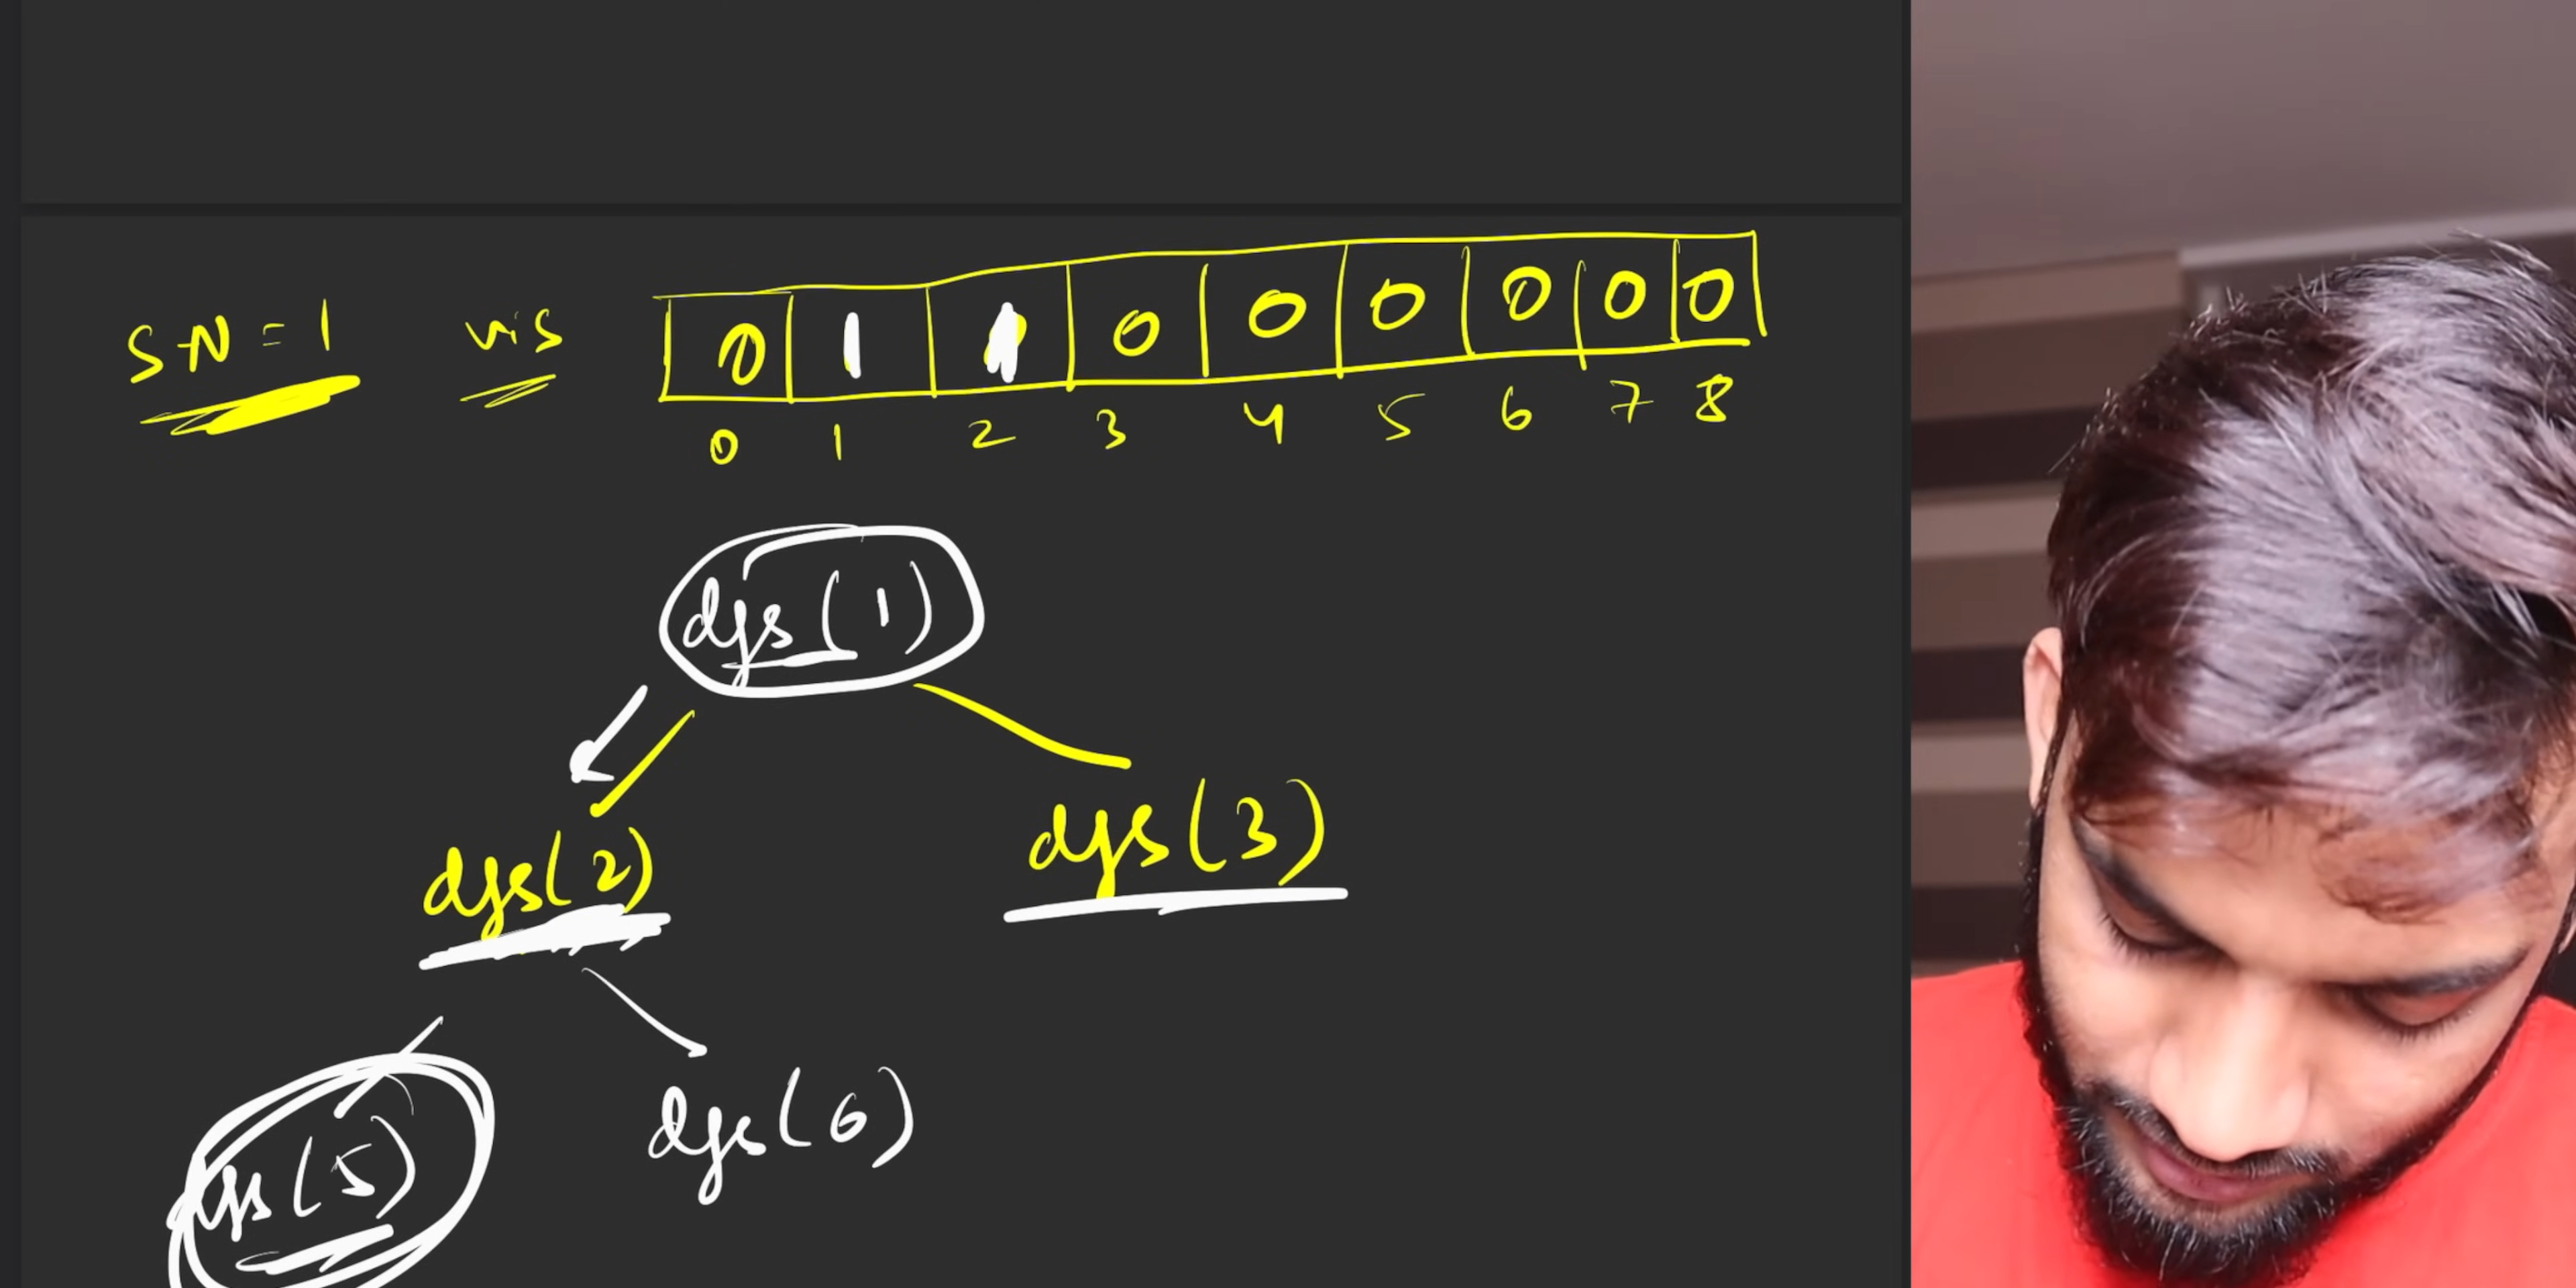 SN = 1 vis 0 1 1 0 0 0 0 0 0
0 1 2 3 4 5 6 7 8
dfs(1)
dfs(2) dfs(3)
dfs(5) dfs(6)